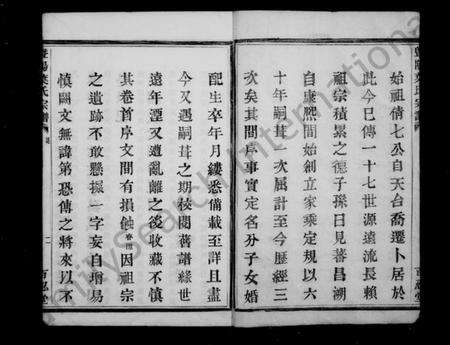 始祖倩七公自天台喬遷卜居於
此今已傳一十七世源遠流長賴
祖宗積累之德子孫日見蕃昌溯
自康熙間始創立家乘定規以六
十年嗣葺一次屆計至今歷經三
次矣其間序事實定名分子女婚
配生卒年月縷悉備載至詳且盡
今又遇嗣葺之期校閱舊譜緣世
遠年湮又遭亂離之後收藏不慎
其卷首序文間有損蝕
因祖宗
之遺跡不敢懸擬一字妄自增易
慎闕文無諱第恐傳之將來以不
暨陽葉氏宗譜
二
百忍堂
MySearch International